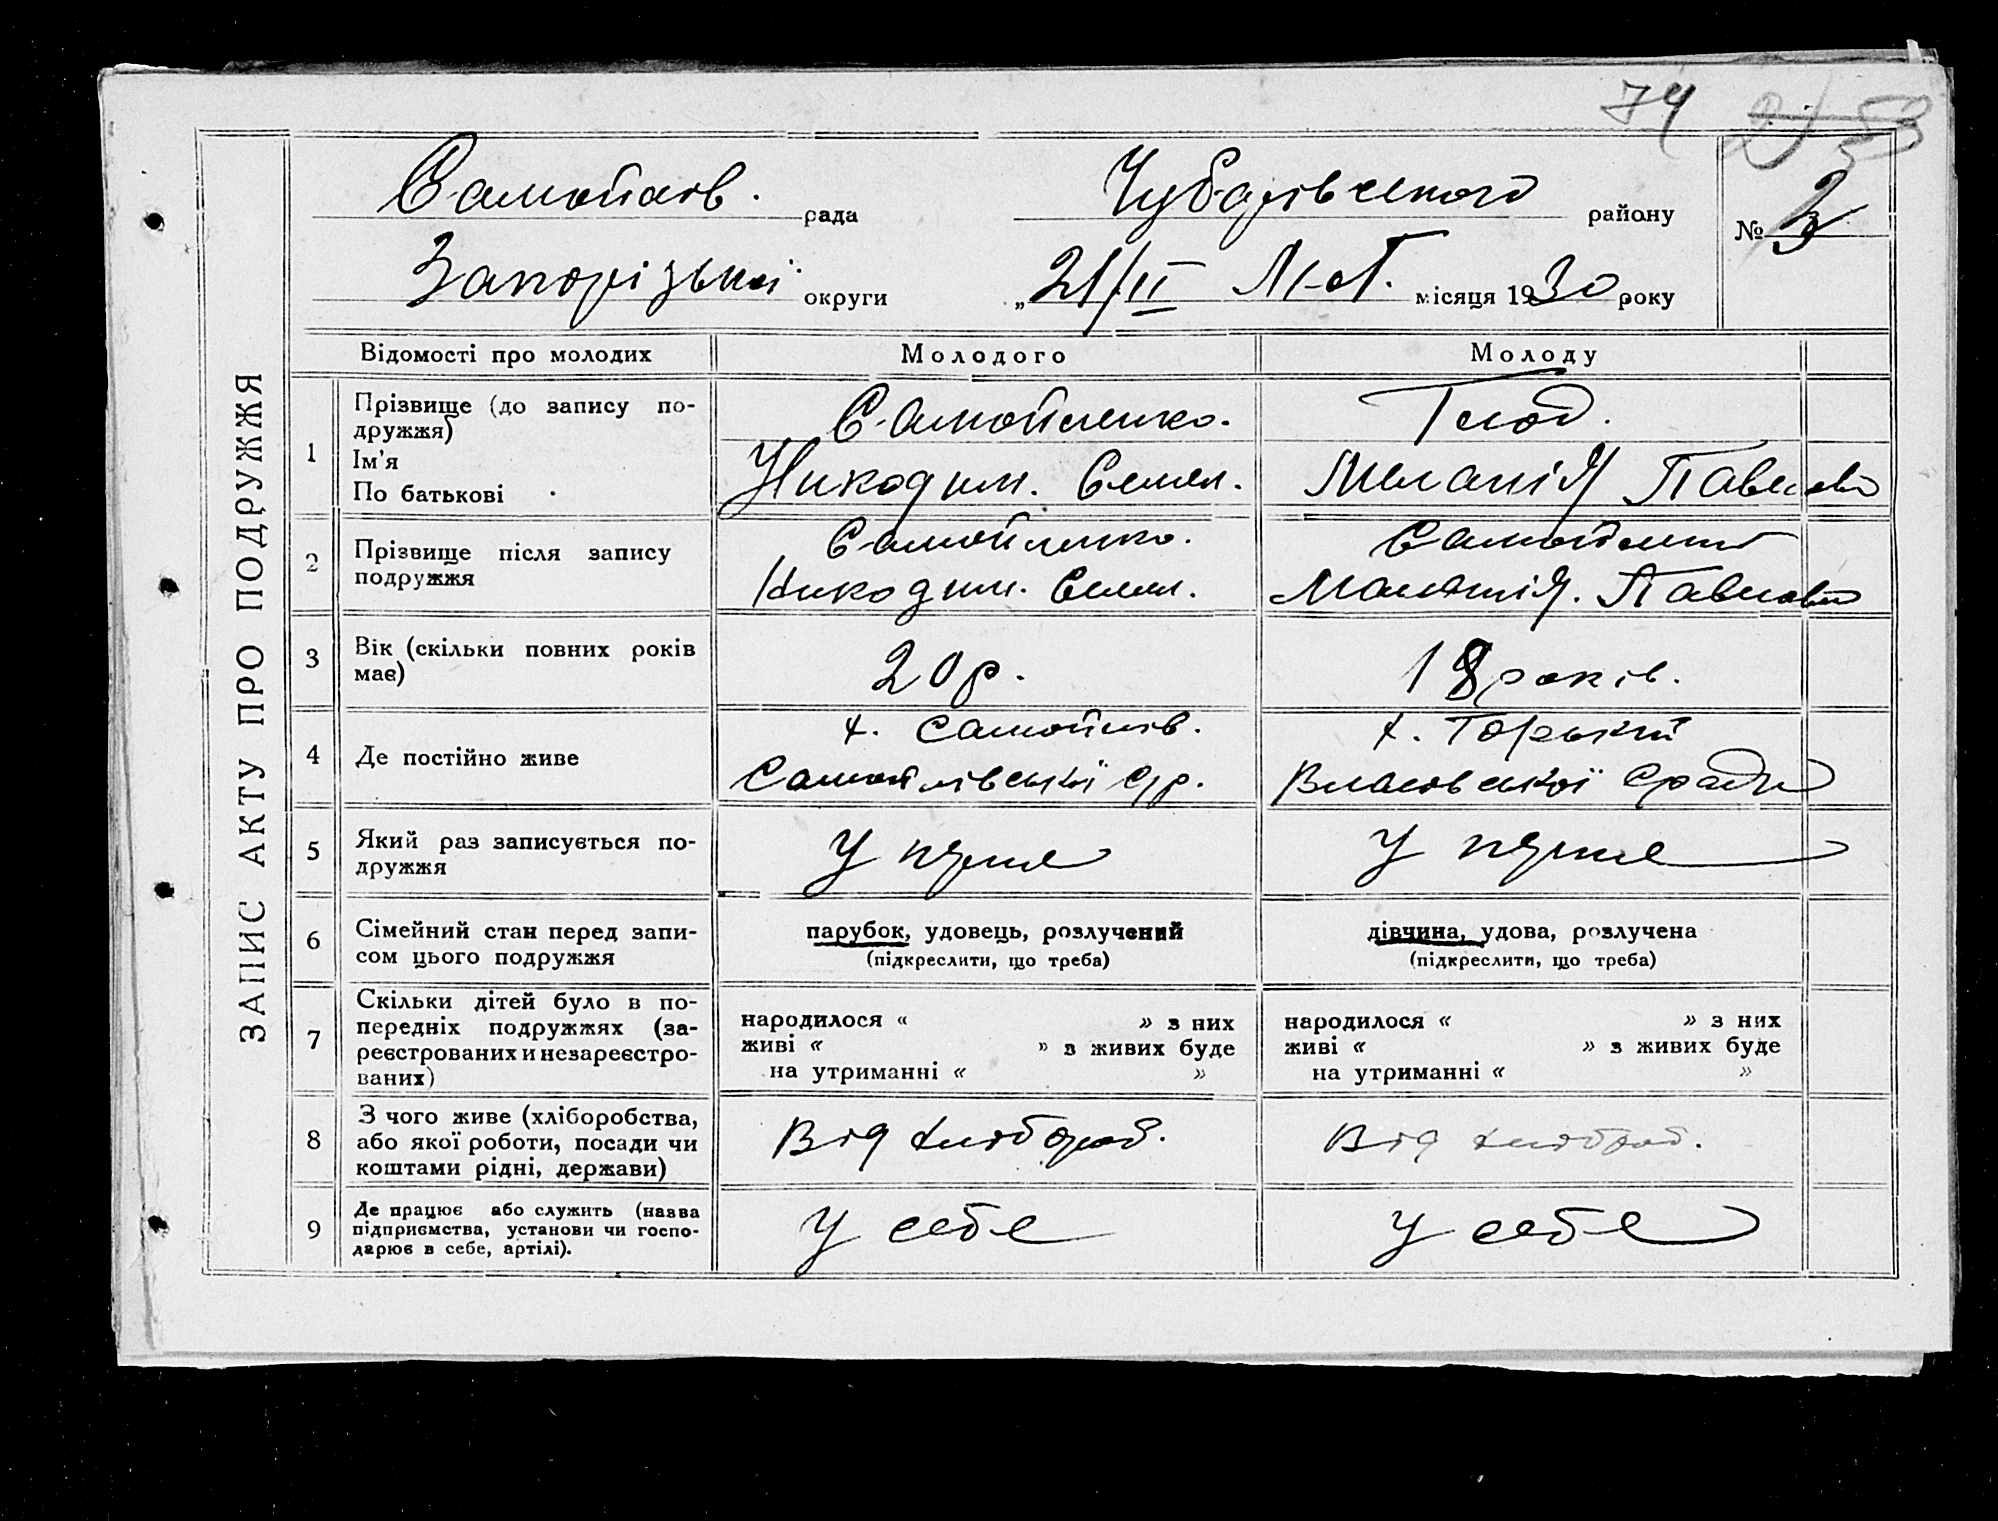 74
ЗАПИС АКТУ ПРО ПОДРУЖЖЯ
Самойлів. рада Чубарівського району
№ 3
Запорізької округи „21/II Лют. місяця 1930 року
Відомості про молодих Молодого Молоду
1 Прізвище (до запису по-
дружжя)
Ім'я
По батькові
Самойленко.
Никодим. Семен.
Глод.
Меланія Павлов
2 Прізвище після запису
подружжя
Самойленко.
Никодим. Семен.
Самойленко
Меланія. Павлов
3 Вік (скільки повних років
має)
20 р.
18 років.
4 Де постійно живе
х. Самойлів.
Самойлівської с/р.
х. Горький
Власівської сради
5 Який раз записується по-
дружжя
У перше
У перше
6 Сімейний стан перед запи-
сом цього подружжя
парубок, удовець, розлучений
(підкреслити, що треба)
дівчина, удова, розлучена
(підкреслити, що треба)
7 Скільки дітей було в по-
передніх подружжях (за-
реєстрованих и незареєстро-
ваних)
народилося « » з них
живі « » з живих буде
на утриманні « »
народилося « » з них
живі « » з живих буде
на утриманні « »
8 З чого живе (хліборобства,
або якої роботи, посади чи
коштами рідні, держави)
Від хлібороб.
Від хлібороб.
9 Де працює або служить (назва
підприємства, установи чи госпо-
дарює в себе, артілі).
У себе
У себе